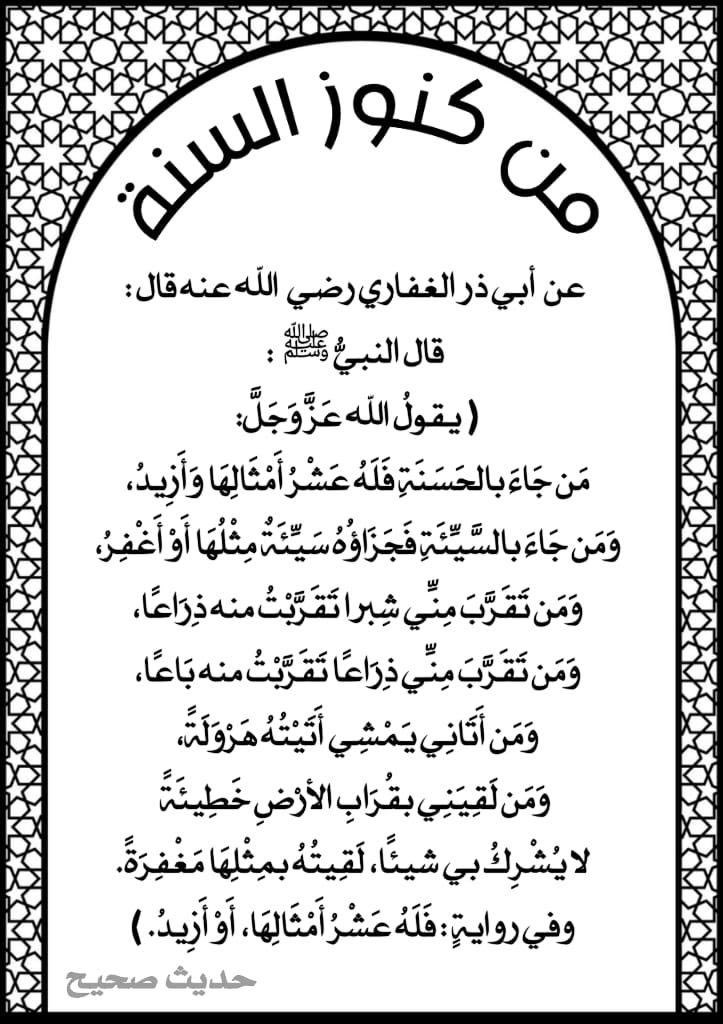 من كنوز السنة
عن أبي ذر الغفاري رضي الله عنه قال:
قال النبيُّ ﷺ :
( يقولُ الله عَزَّ وَجَلَّ:
مَن جَاءَ بالحَسَنَةِ فَلَهُ عَشْرُ أَمْثَالِهَا وَأَزِيدُ،
وَمَن جَاءَ بالسَّيِّئَةِ فَجَزَاؤُهُ سَيِّئَةٌ مِثْلُهَا أَوْ أَغْفِرُ،
وَمَن تَقَرَّبَ مِنِّي شِبرا تَقَرَّبْتُ منه ذِرَاعًا،
وَمَن تَقَرَّبَ مِنِّي ذِرَاعًا تَقَرَّبْتُ منه بَاعًا،
وَمَن أَتَانِي يَمْشِي أَتَيْتُهُ هَرْوَلَةً،
وَمَن لَقِيَنِي بقُرَابِ الأرْضِ خَطِيئَةً
لا يُشْرِكُ بي شيئًا، لَقِيتُهُ بمِثْلِهَا مَغْفِرَةً.
وفي روايةٍ: فَلَهُ عَشْرُ أَمْثَالِهَا، أَوْ أَزِيدُ. )
حديث صحيح